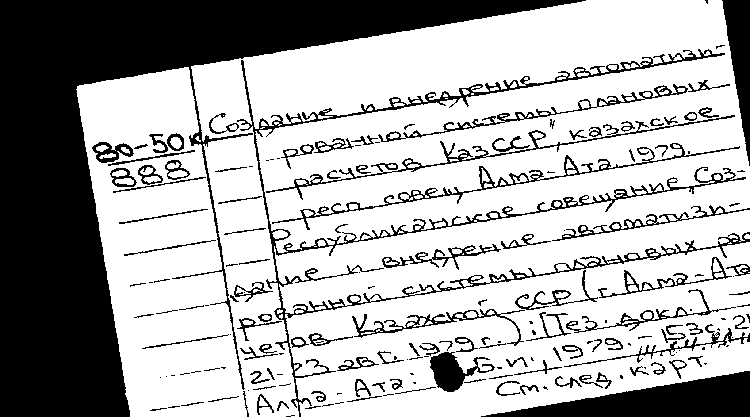 80-50к
888
„Создание и внедрение автоматизи-
рованной системы плановых
расчетов КазССР", казахское
респ. совещ. Алма-Ата 1979.
Республиканское совещание „Соз-
дание и внедрение автоматизи-
рованной системы плановых рас
четов Казахской ССР (г. Алма-Ата
21-23 авг. 1979 г.): [Тез. докл.] —
Алма-Ата: Б.и., 1979. – 153с; 21
См. след. карт.